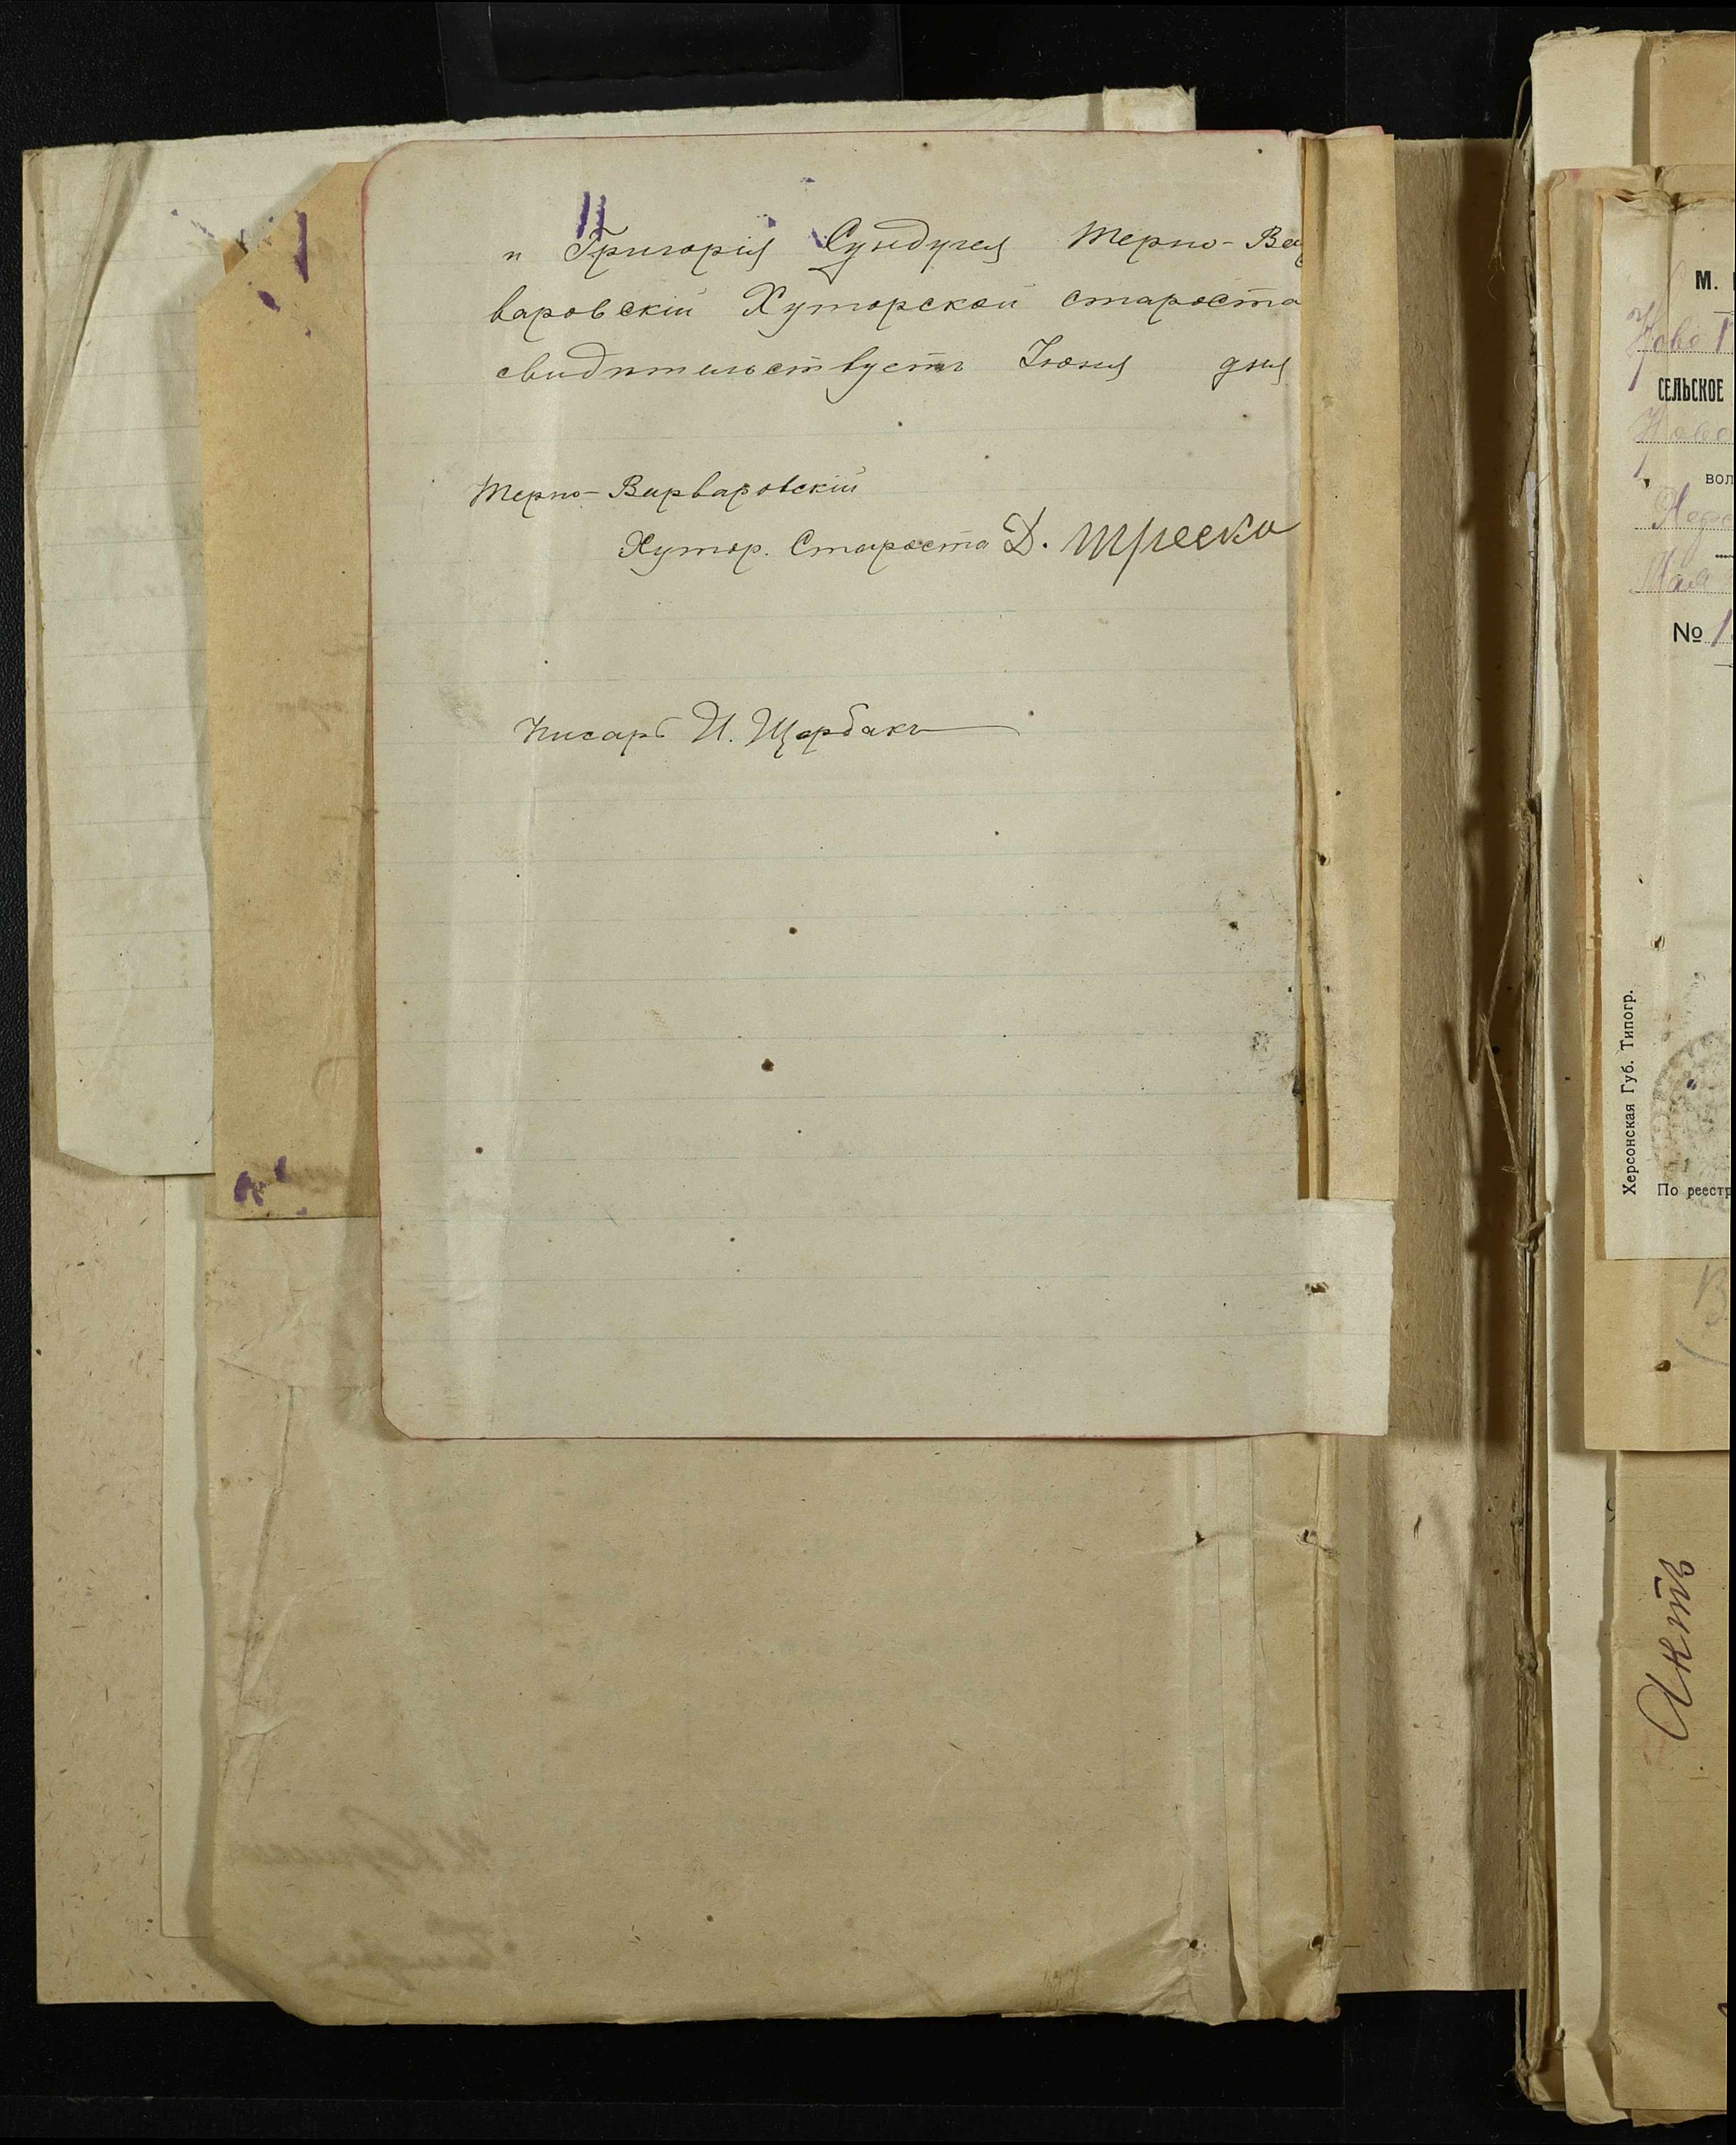 и Григорія Сундугея Терно-Вар
варовскій Хуторской староста
свидѣтельствуетъ Іюня дня
Терно-Варваровскій
Хутор. Староста Д.
Писарь И. Щербакъ
М.
Ново
СЕЛЬСКОЕ
Ново
вол
№ 1
Херсонская Губ. Типогр.
По реестр
Актъ